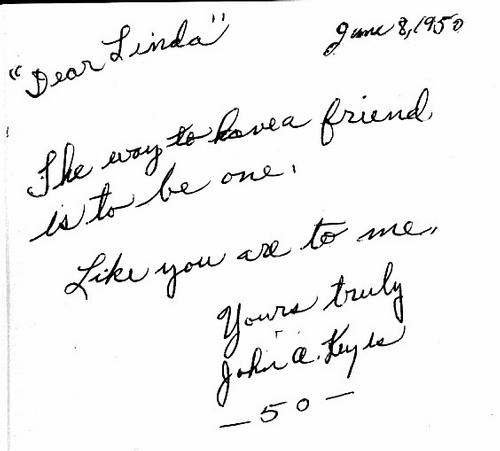 June 8, 1950
"Dear Linda"
The way to have a friend,
is to be one.
Like you are to me.
Yours truly
John A. Keyes
— 50 —